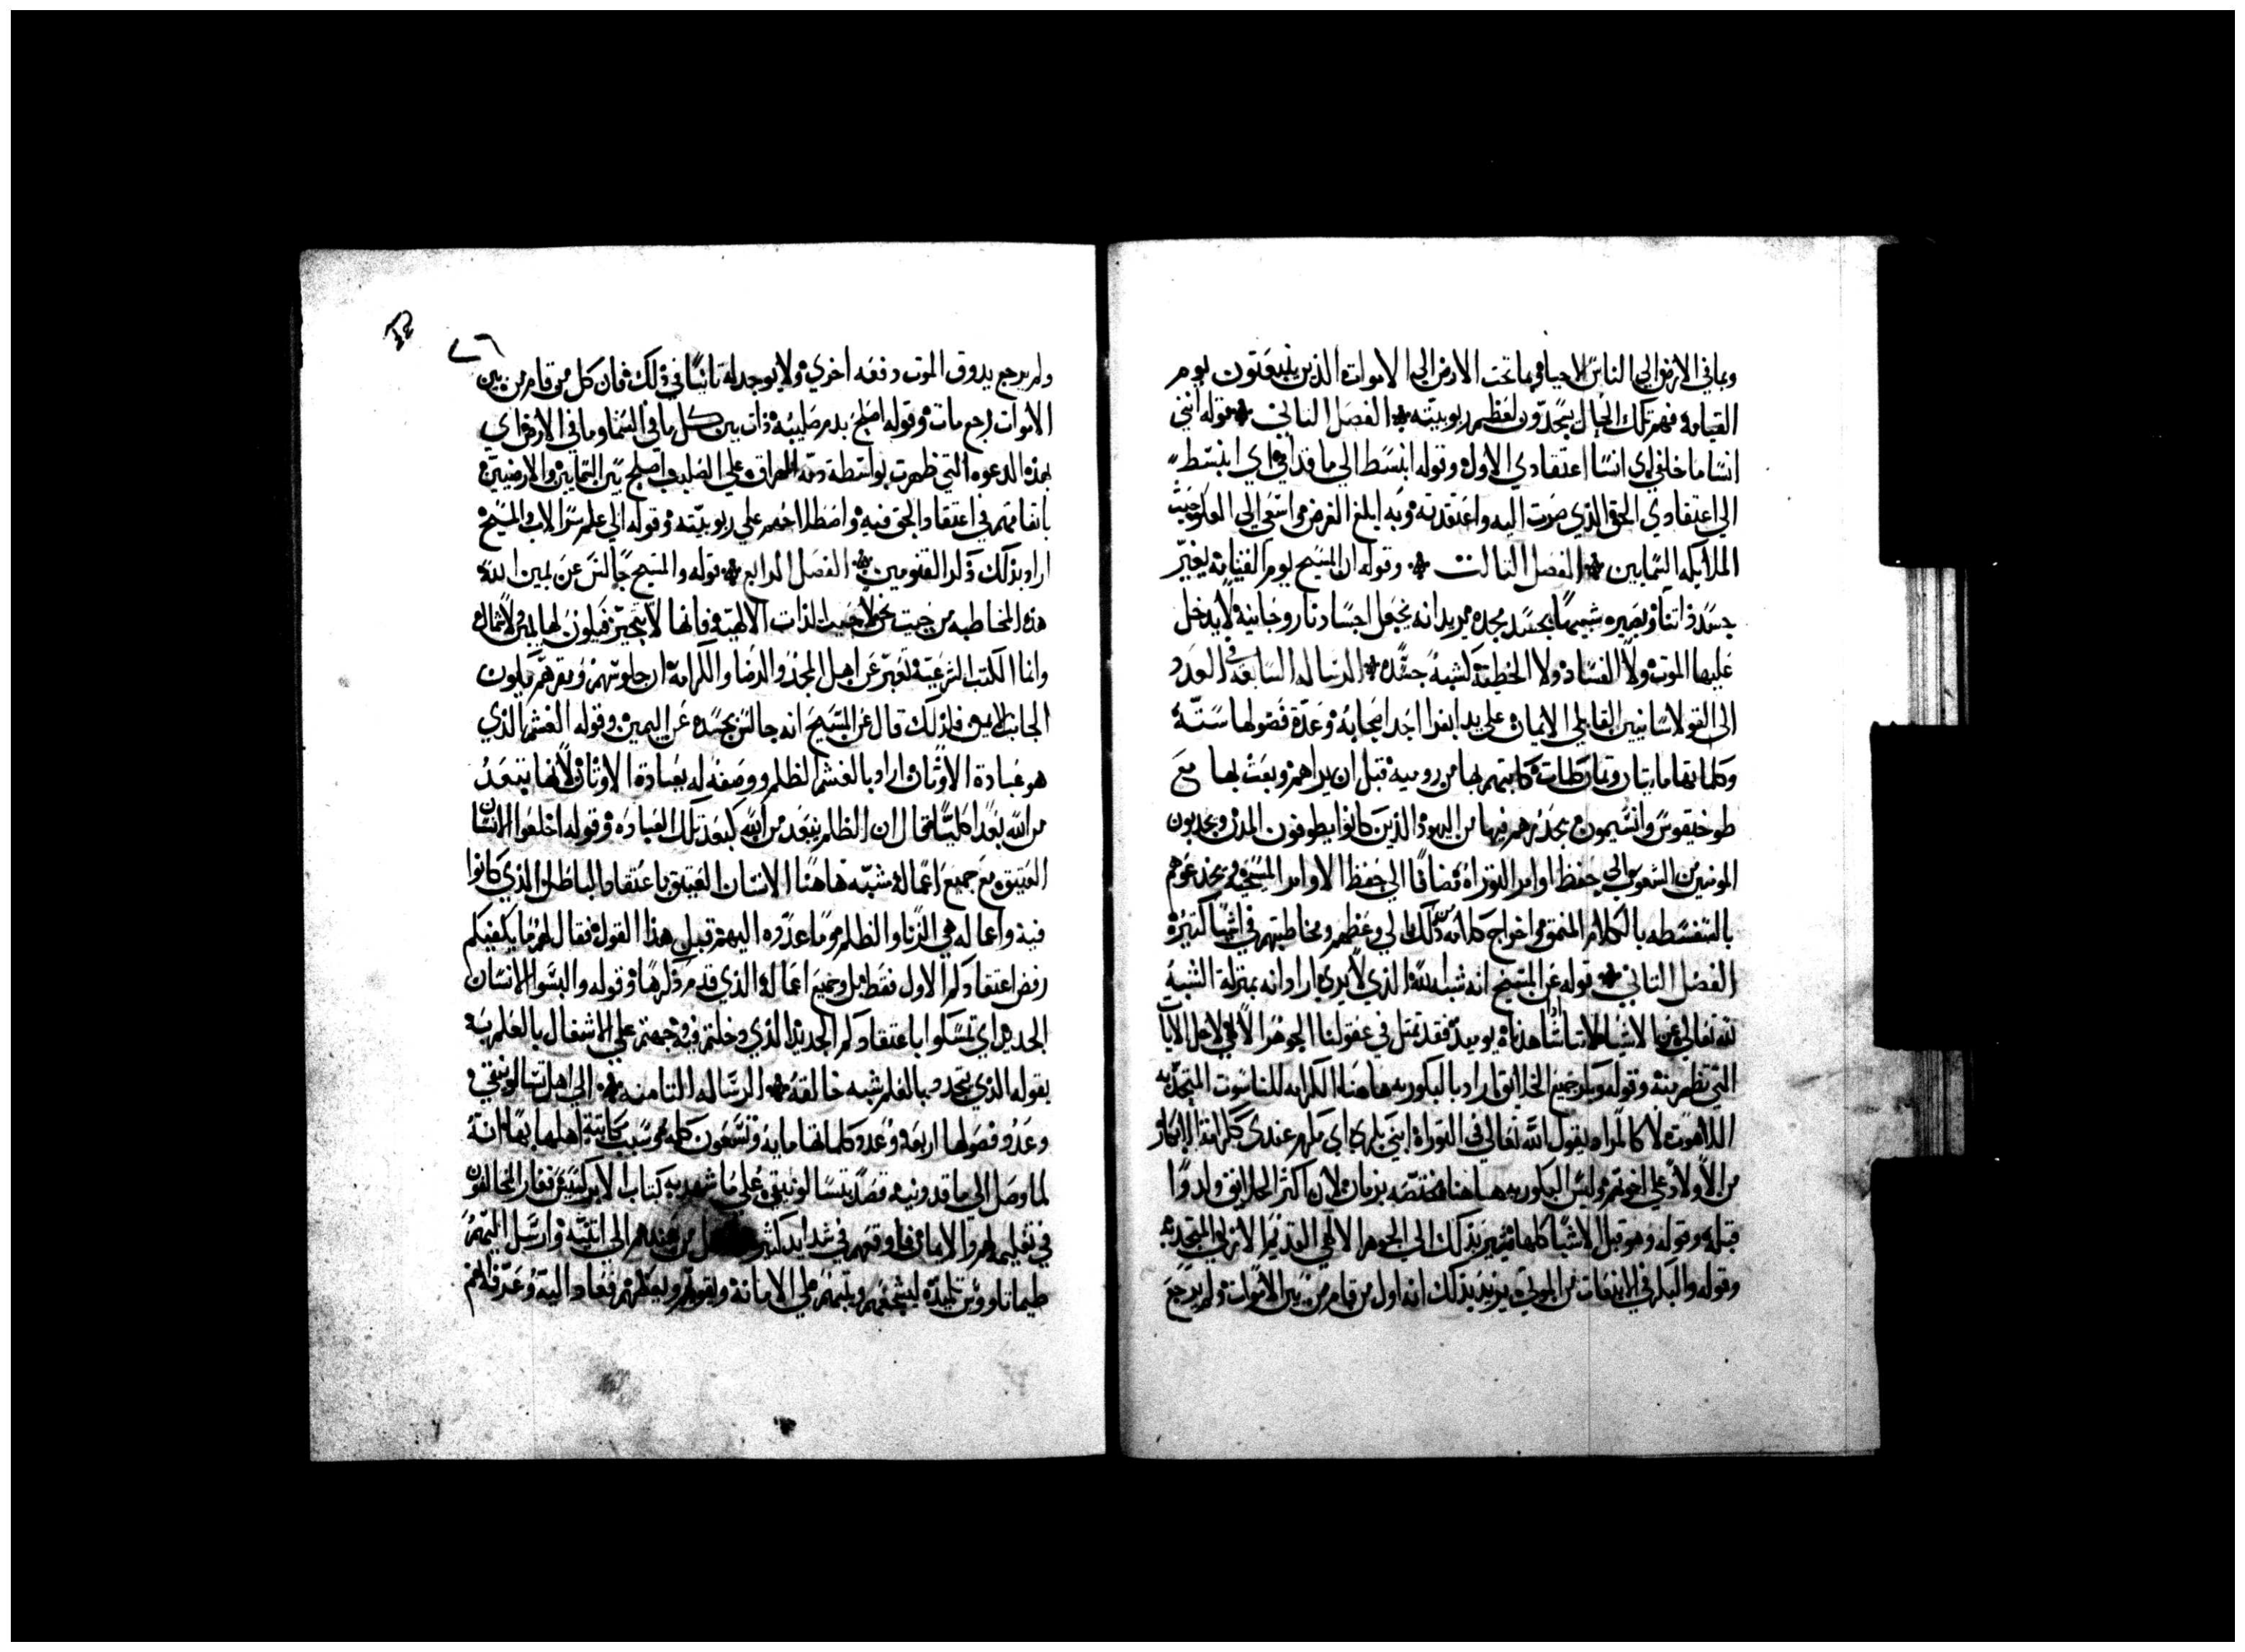 وما في الارض الي الناس الاحيا وما تحت الارض الي الاموات الذين ينبعثون يوم
القيامه فهم تلك الحال يمجدون لعظم ربوبيته الفصل الثاني قوله انني
انسا ما خلفي اي انسا اعتقادي الاول وقوله انبسط الي ما قدامي اي انبسط
الي اعتقادي الحق الذي صرت اليه واعتقدته وبه ابلغ الغرض واسعي الي العلو حيث
الملايكه السمايين الفصل الثالث وقوله ان المسيح يوم القيامه يغير
جسد ذاتنا ويصيره شبيها بجسد مجده يريد انه يجعل اجسادنا روحانيه لا يدخل
عليها الموت ولا الفساد ولا الخطيه لشبه جسده الرساله السابعه في العدد
الي القولاسايين القابلي الايمان علي يد ابفرا احد اصحابه وعدة فصولها ستة
وكلماتها مايتان وثمان كلمات كاتبهم بها من روميه قبل ان يراهم وبعث بها مع
طوخيقوس وانسيموس يحذرهم فيها من اليهود الذين كانوا يطوفون المدن ويجدبون
المومنين من الشعوب الي حفظ اوامر التوراة مضافا الي حفظ الاوامر المسيحيه ويخدعوهم
بالسفسطه بالكلام المنمق واخراج كلامه ذلك لي وعظهم ومخاطبتهم في اشيا كثيره
الفصل الثاني قوله عن المسيح انه شبه الله الذي لا يري اراد انه بمنزلة الشبه
لله تعالي عن الاشباه لاننا شاهدناه يوميذ فقد تمثل في عقولنا الجوهر الالاهي لاجل الايات
التي تظهر منه وقوله وبكر جميع الخلايق اراد بالبكوريه هاهنا الكرامه للناسوت المتحد به
اللاهوت لا كالمراه يقول الله تعالي في التوراة ابني بكري اي مكرم عندي ككرامة الابكار
من الاولاد علي اخوتهم وليس البكوريه هاهنا مختصه بزمان لان اكثر الخلايق ولدوا
قبله وقوله وهو قبل الاشيا كلها يشير بذلك الي الجوهر الالاهي القديم الازلي المتحد به
وقوله والبكر في الانبعاث من الموتي يريد بذلك انه اول من قام من بين الاموات ولم يرجع
٧٦
ولم يرجع يدوق الموت دفعه اخري ولا يوجد له ثانيا في ذلك فان كل من قام من بين
الاموات رجع مات وقوله اصلح بدم صليبه ذات بين كل ما في السما وما في الارض اي
بهذه الدعوه التي ظهرت بواسطة دمه المهراق علي الصليب اصلح بين السمايين والارضيين
باتفاقهم في اعتقاد الحق فيه واصطلاحهم علي ربوبيته وقوله الي علم سر الاب والمسيح
اراد بذلك ذكر القنومين الفصل الرابع قوله والمسيح جالس عن يمين الله
هذه المخاطبه من حيث نحن لا حيث الذات الالهية فانها لا تتحيز فيكون لها يمين ولا شمال
وانما الكتب الشرعية تعبر عن اهل المجد والرضا والكرامة ان جلوسهم ومقرهم يكون
الجانب الايمن فلذلك قال عن المسيح انه جالس بجسده عن اليمين وقوله الغشم الذي
هو عبادة الاوثان اراد بالغشم الظلم ووصفه له بعبادة الاوثان لانها تبعد
من الله بعدا كليا فقال ان الظلم يبعد من الله كبعد تلك العباده وقوله اخلعوا الانسان
العتيق مع جميع اعماله شبه هاهنا الانسان العتيق باعتقاد الباطل الذي كانوا
فيه واعماله هي الزنا والظلم وما عدده اليهم قبل هذا القول فقال لهم ما يكفيكم
رفض اعتقادكم الاول فقط بل وجميع اعماله الذي قدم ذكرها وقوله والبسوا الانسان
الجديد اي تمسكوا باعتقادكم الجديد الذي دخلتم فيه وحثهم علي الاشغال بالعلم فيه
بقوله الذي يتجدد بالعلم شبه خالقه الرساله الثامنه الي اهل تسالونيقي
وعدد فصولها اربعه وعدد كلماتها مايه وتسعون كلمه سبب مكاتبة اهلها بها انه
لما وصل الي ماقدونيه قصد تسالونيقي علي ما شهد به كتاب الابركسيس فغار المخالفون
في تعليمه لهم والايمان فاوقعهم في شدايد كثيره من عندهم الي اثينه وارسل اليهم
طيماتاوس تلميذه ليشجعهم ويثبتهم علي الامانة ويقويهم ويعظهم فعاد اليه وعرفه انهم